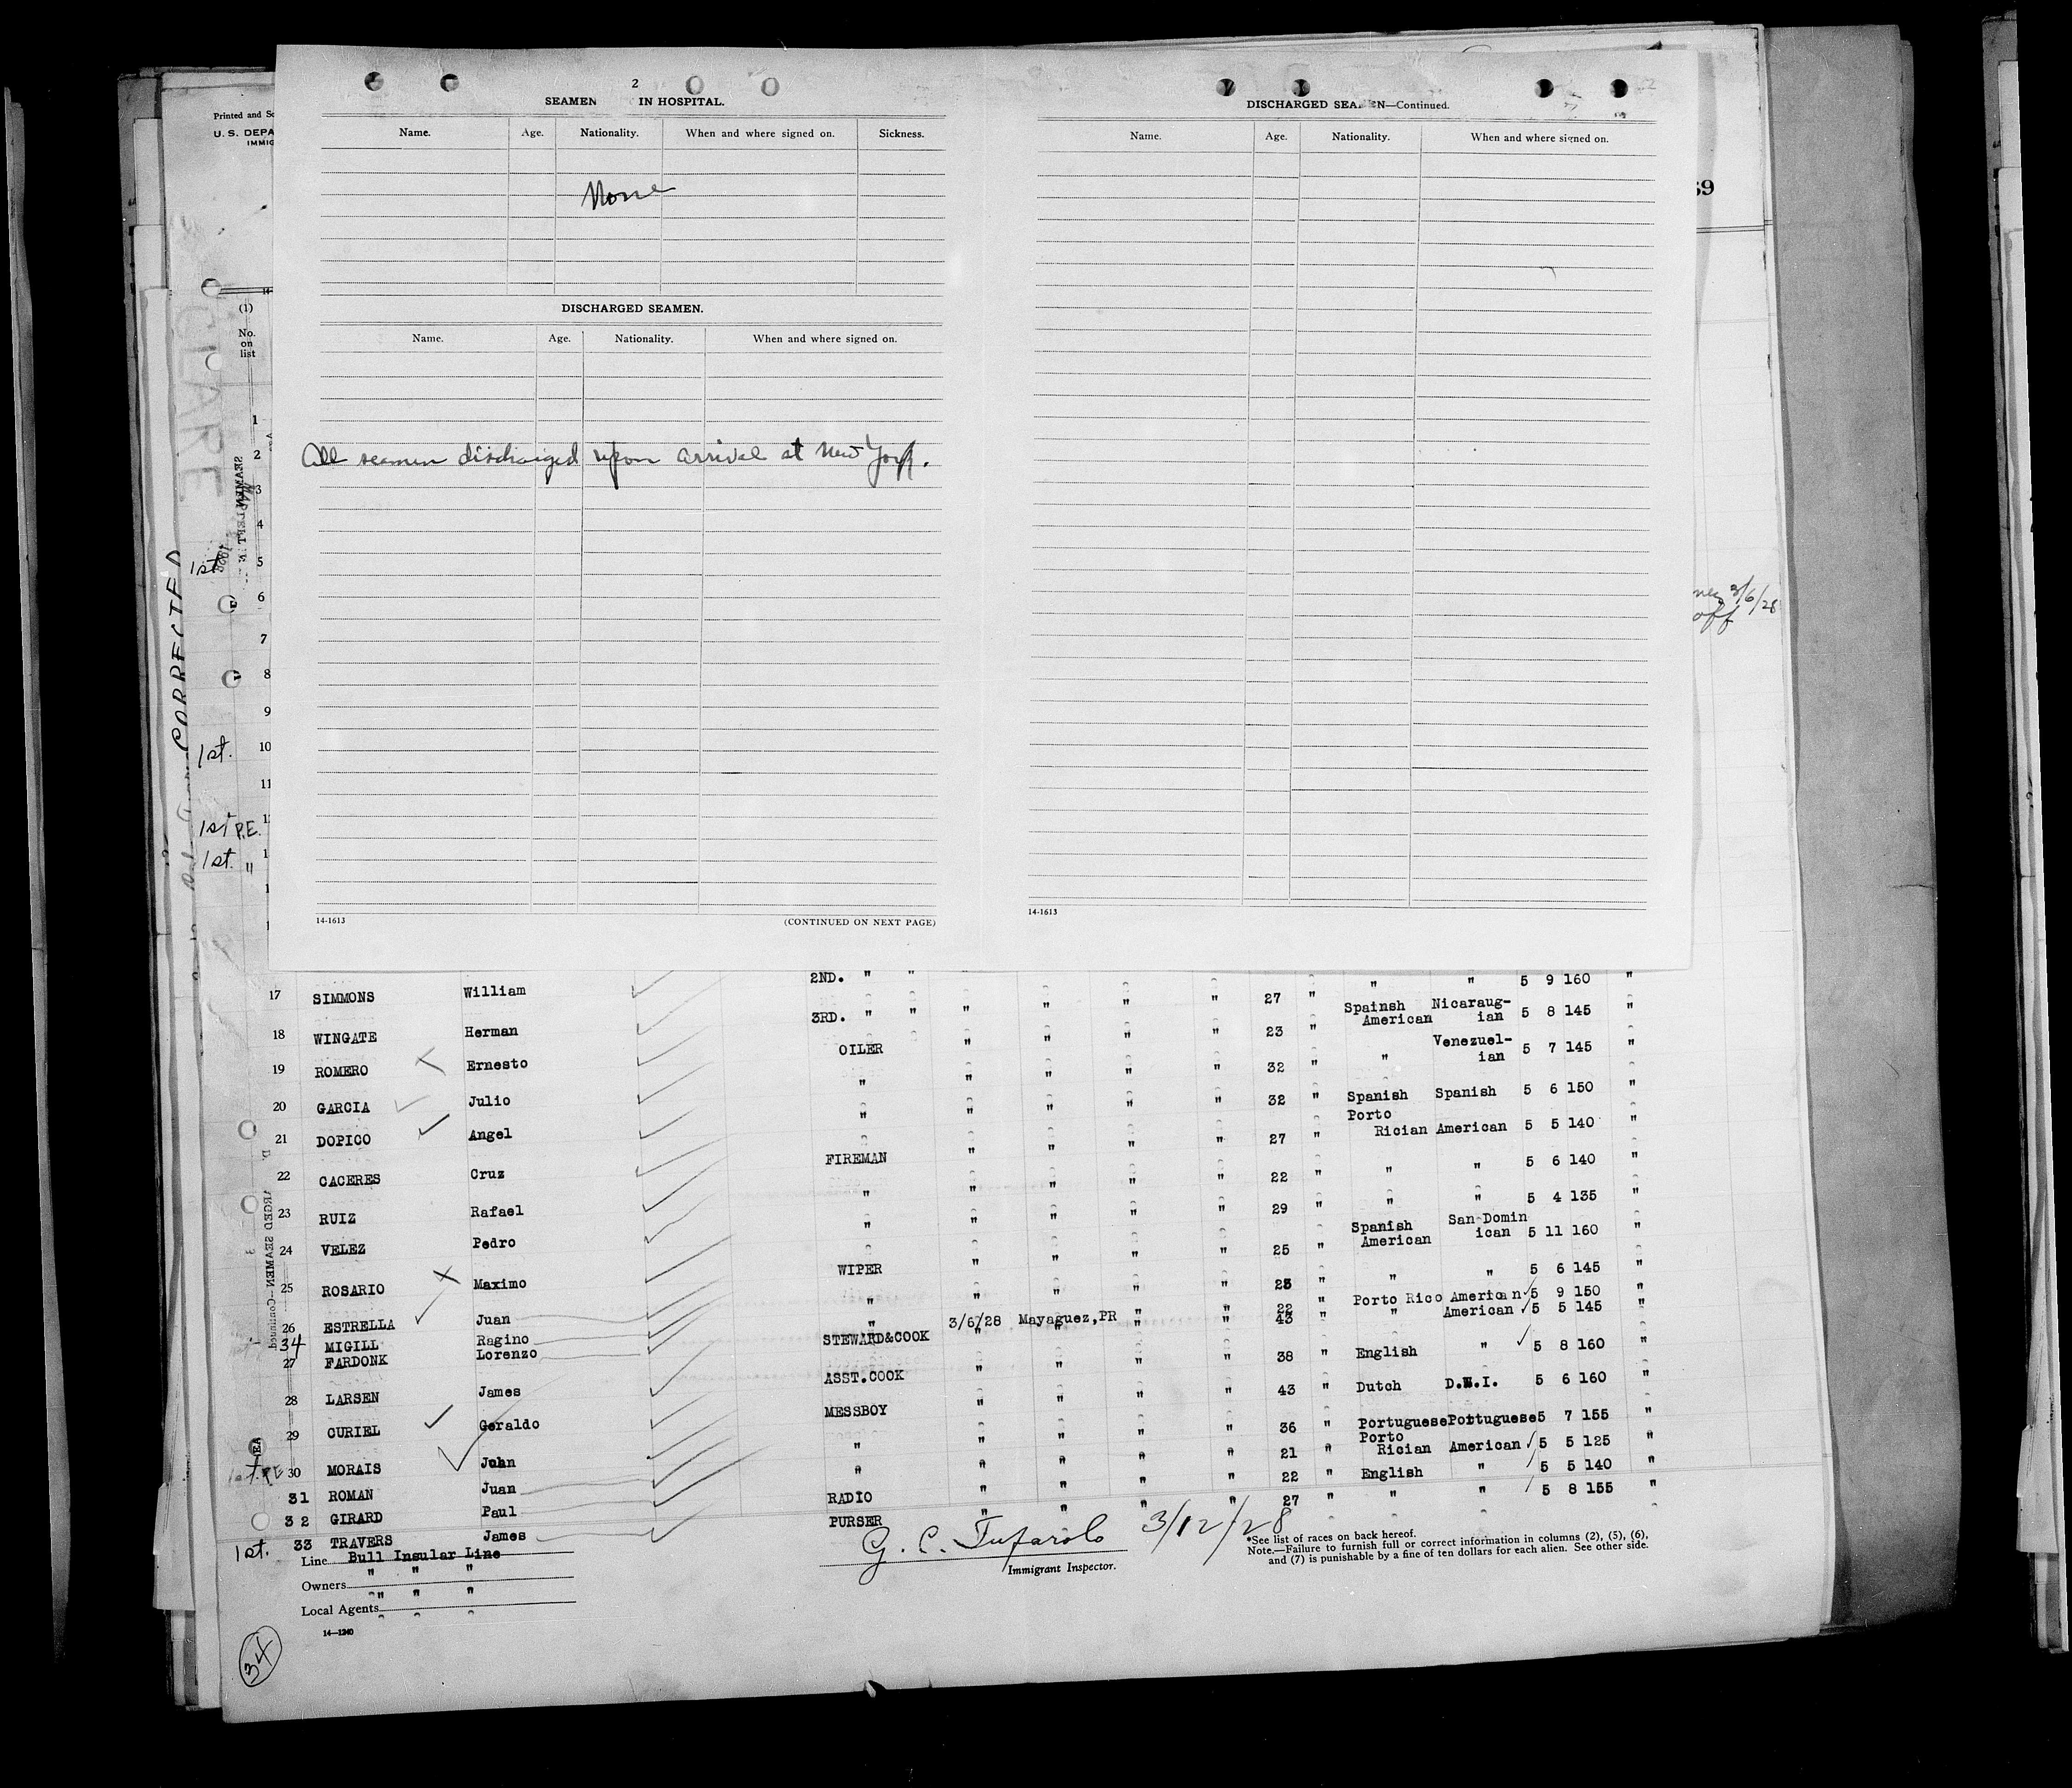 2
SEAMEN IN HOSPITAL.
Name. Age. Nationality. When and where signed on. Sickness.
None
DISCHARGED SEAMEN.
Name. Age. Nationality. When and where signed on.
All seamen discharged upon arrival at New York.
14-1613 (CONTINUED ON NEXT PAGE)
DISCHARGED SEAMEN—Continued.
Name. Age. Nationality. When and where signed on.
14-1613
Printed and
U. S. DEPA
IMMIG
(1)
No.
on
list
1
2
3
4
1st 5
6
7
8
9
1st. 10
11
1st P.E.
1st. "
CORRECTED
3/6/28
off
2ND. " " " " 5 9 160 "
17 SIMMONS William " " " " 27 " Spainsh Nicaraug-
3RD. " " " American ian 5 8 145 "
18 WINGATE Herman " " " " 23 " Venezuel-
OILER " ian 5 7 145 "
19 ROMERO Ernesto " " " " " 32 "
20 GARCIA Julio " " " " " 32 " Spanish Spanish 5 6 150 "
Porto
21 DOPICO Angel " " " " 27 " Rician American 5 5 140 "
FIREMAN
22 CACERES Cruz " " " " 22 " " " 5 6 140 "
23 RUIZ Rafael " " " " " 29 " " " 5 4 135 "
Spanish San Domin
24 VELEZ Pedro " " " " " 25 " American ican 5 11 160 "
WIPER
25 ROSARIO Maximo " " " " 25 " " " 5 6 145 "
26 ESTRELLA Juan " " " " " 22 " Porto Rico American 5 9 150 "
34 MIGILL Ragino " 3/6/28 Mayaguez, PR " " 43 " " American 5 5 145 "
27 FARDONK Lorenzo STEWARD&COOK " " " " 38 " English " 5 8 160 "
28 LARSEN James ASST.COOK " " " " 43 " Dutch D.W.I. 5 6 160 "
29 CURIEL Geraldo MESSBOY " " " " 36 " Portuguese Portuguese 5 7 155 "
Porto
30 MORAIS John " " " " " 21 " Rician American 5 5 125 "
31 ROMAN Juan " " " " " 22 " English " 5 5 140 "
32 GIRARD Paul RADIO " " " " 27 " " " 5 8 155 "
1st. 33 TRAVERS James PURSER
Line Bull Insular Line
Owners " " "
Local Agents " " "
14—1240
34
G. C. Tufarolo 3/12/28
Immigrant Inspector.
*See list of races on back hereof.
Note.—Failure to furnish full or correct information in columns (2), (5), (6),
and (7) is punishable by a fine of ten dollars for each alien. See other side.